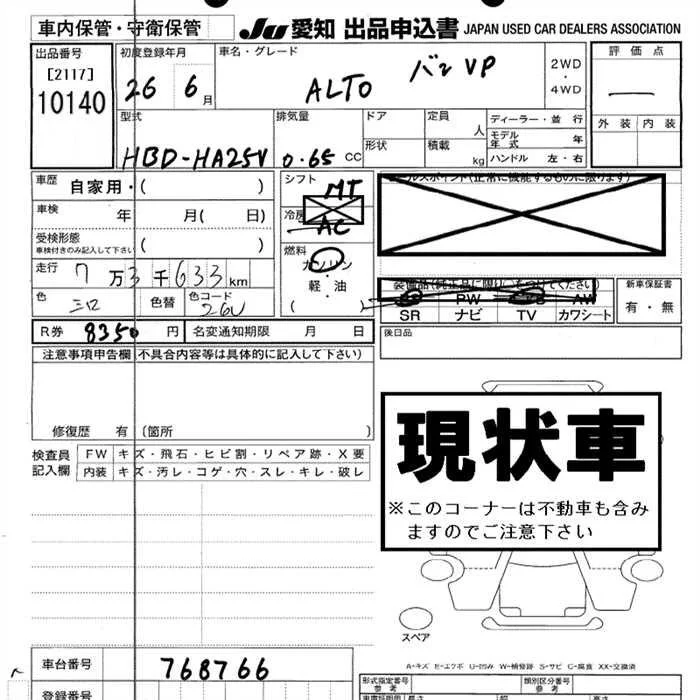 車内保管・守衛保管
JU 愛知 出品申込書 JAPAN USED CAR DEALERS ASSOCIATION
出品番号
[2117]
10140
初度登録年月
26 6 月
車名・グレード
ALTO バン VP
2WD
・
4WD
評価点
外装 内装
型式
HBD-HA25V
排気量
0.65 CC
ドア
形状
定員
人
積載
kg
ディーラー・並 行
モデル年式 年
ハンドル 左・右
車歴 自家用・( )
車検 年 月( 日)
受検形態
車検付きのみ記入して下さい ( )
走行 7 万 3 千 633 km
色 シロ 色替 色コード 26U
シフト
MT
冷房
AC
燃料
ガソリン
・
軽・油
( )
セールスポイント(正常に機能するものに限ります)
装備品(純正品に限り○をつけてください)
PW AW
SR ナビ TV カワシート
新車保証書
有・無
後日品
R券 8350 円 名変通知期限 月 日
注意事項申告欄(不具合内容等は具体的に記入して下さい)
修復歴 有 〔箇所 〕
検査員
記入欄
FW キズ・飛石・ヒビ割・リペア跡・X要
内装 キズ・汚レ・コゲ・穴・スレ・キレ・破レ
現状車
※このコーナーは不動車も含み
ますのでご注意下さい
スペア
A-キズ E-エクボ U-凹み W-補修跡 S-サビ C-腐食 XX-交換済
車台番号 768766
登録番号
形式指定番号
参考
類別区分番号
参考